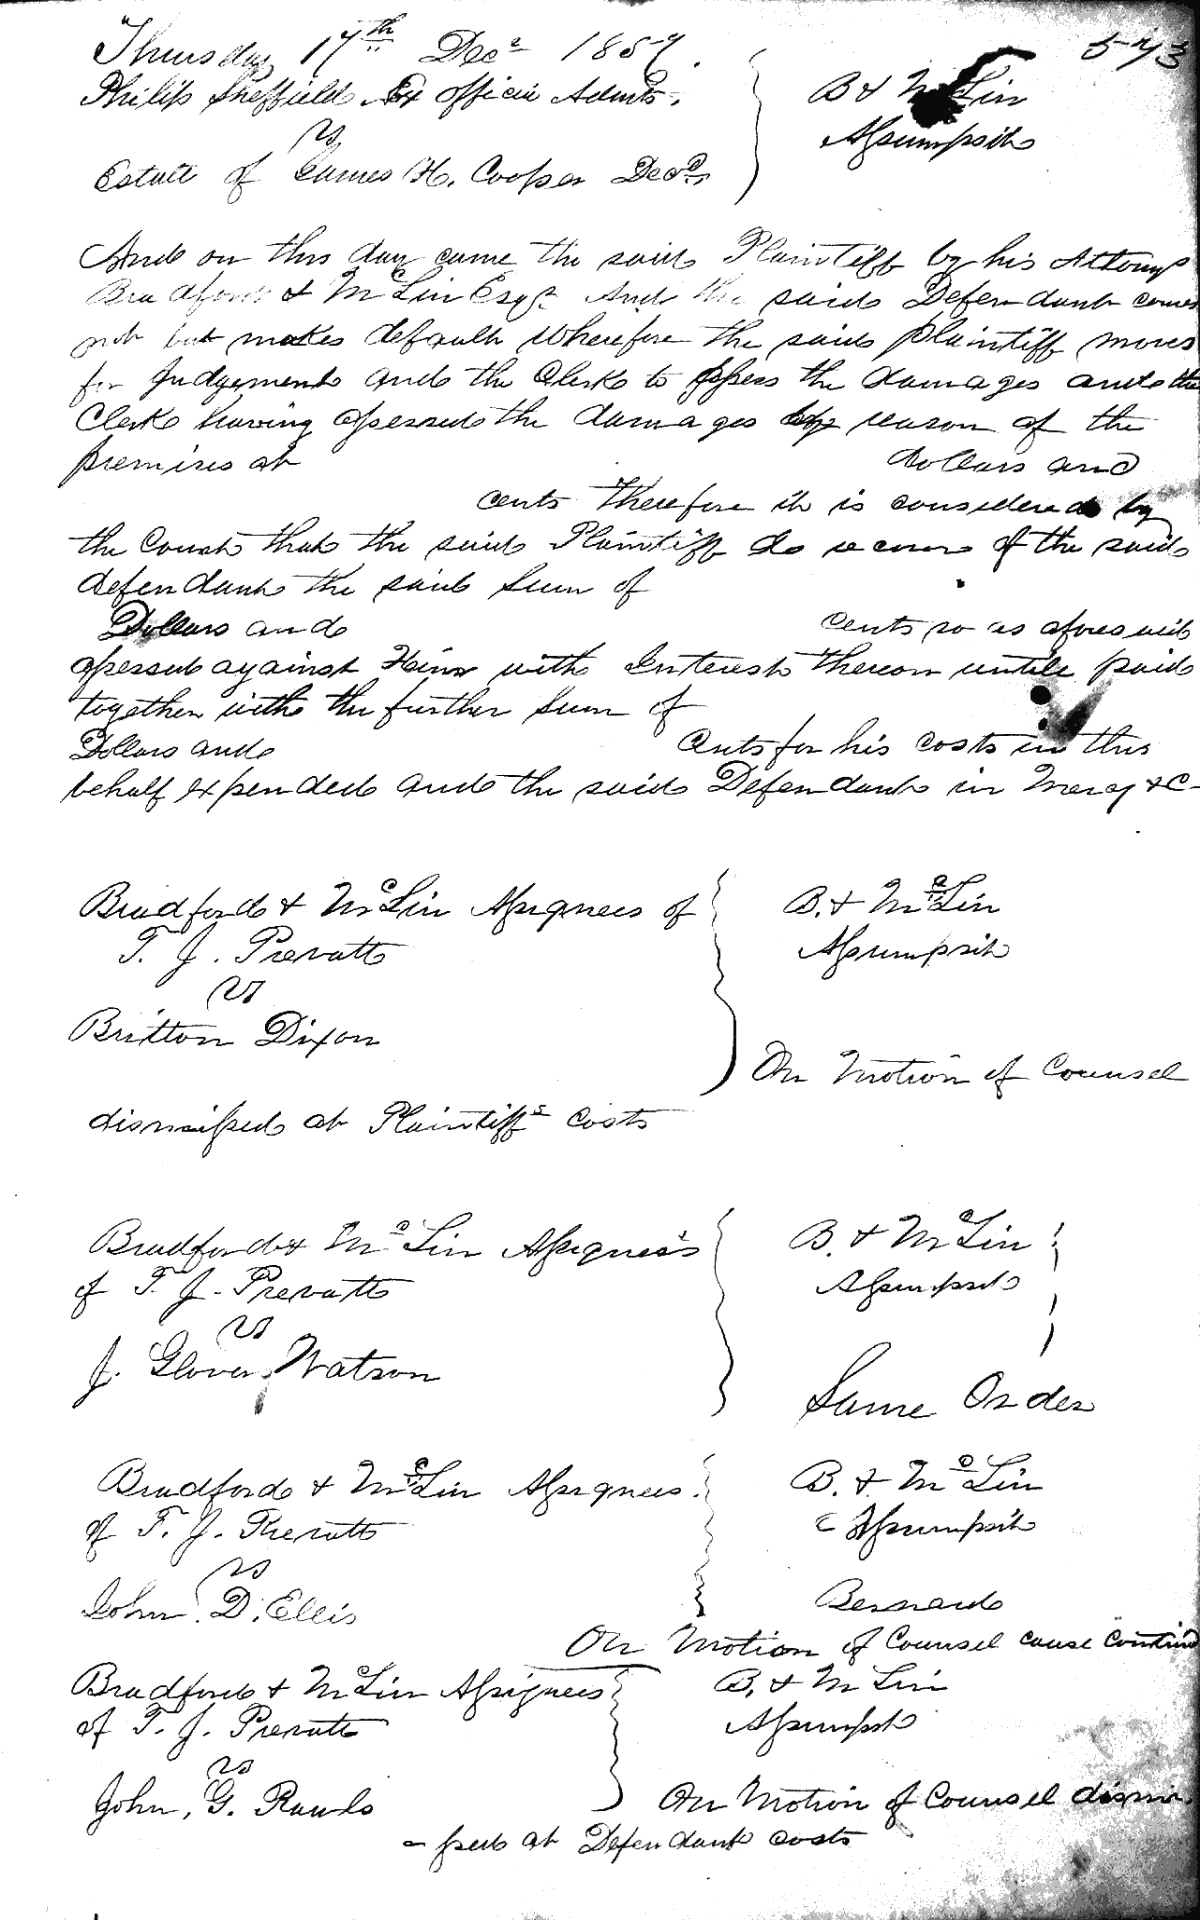 573
Thursday 17th Decr 1857.
Philip Sheffield Ex officio Admtr.
vs
Estate of James H. Cooper Decd.
B & McLin
Assumpsit
And on this day came the said Plaintiff by his Attorneys
Bradford & McLin Esqr. And the said Defendant comes
not but makes default Wherefore the said plaintiff moves
for Judgement and the Clerk to assess the damages and the
Clerk having assessed the damages by reason of the
premises at dollars and
cents Therefore it is considered by
the Court that the said Plaintiff do recover of the said
defendant the said Sum of
Dollars and cents so as aforesaid
assessed against Him with Interest thereon untill paid
together with the further Sum of
Dollars and Cents for his costs in this
behalf expended and the said Defendant in Mercy &C-
Bradford & McLin Assignees of
T. J. Prevatt
vs
Britton Dixon
B. & McLin
Assumpsit
On Motion of Counsel
dismissed at Plaintiffs costs
Bradford & McLin Assignees
of T. J. Prevatt
vs
J. Glover Watson
B. & McLin
Assumpsit
Same Order
Bradford & McLin Assignees.
of T. J. Prevatt
vs
John D. Ellis
B. & McLin
Assumpsit
Bernard
On Motion of Counsel cause continud
Bradford & McLin Assignees
of T. J. Prevatt
vs
John, G. Rawls
B. & McLin
Assumpsit
On Motion of Counsel dismi
- ssed at Defendant costs